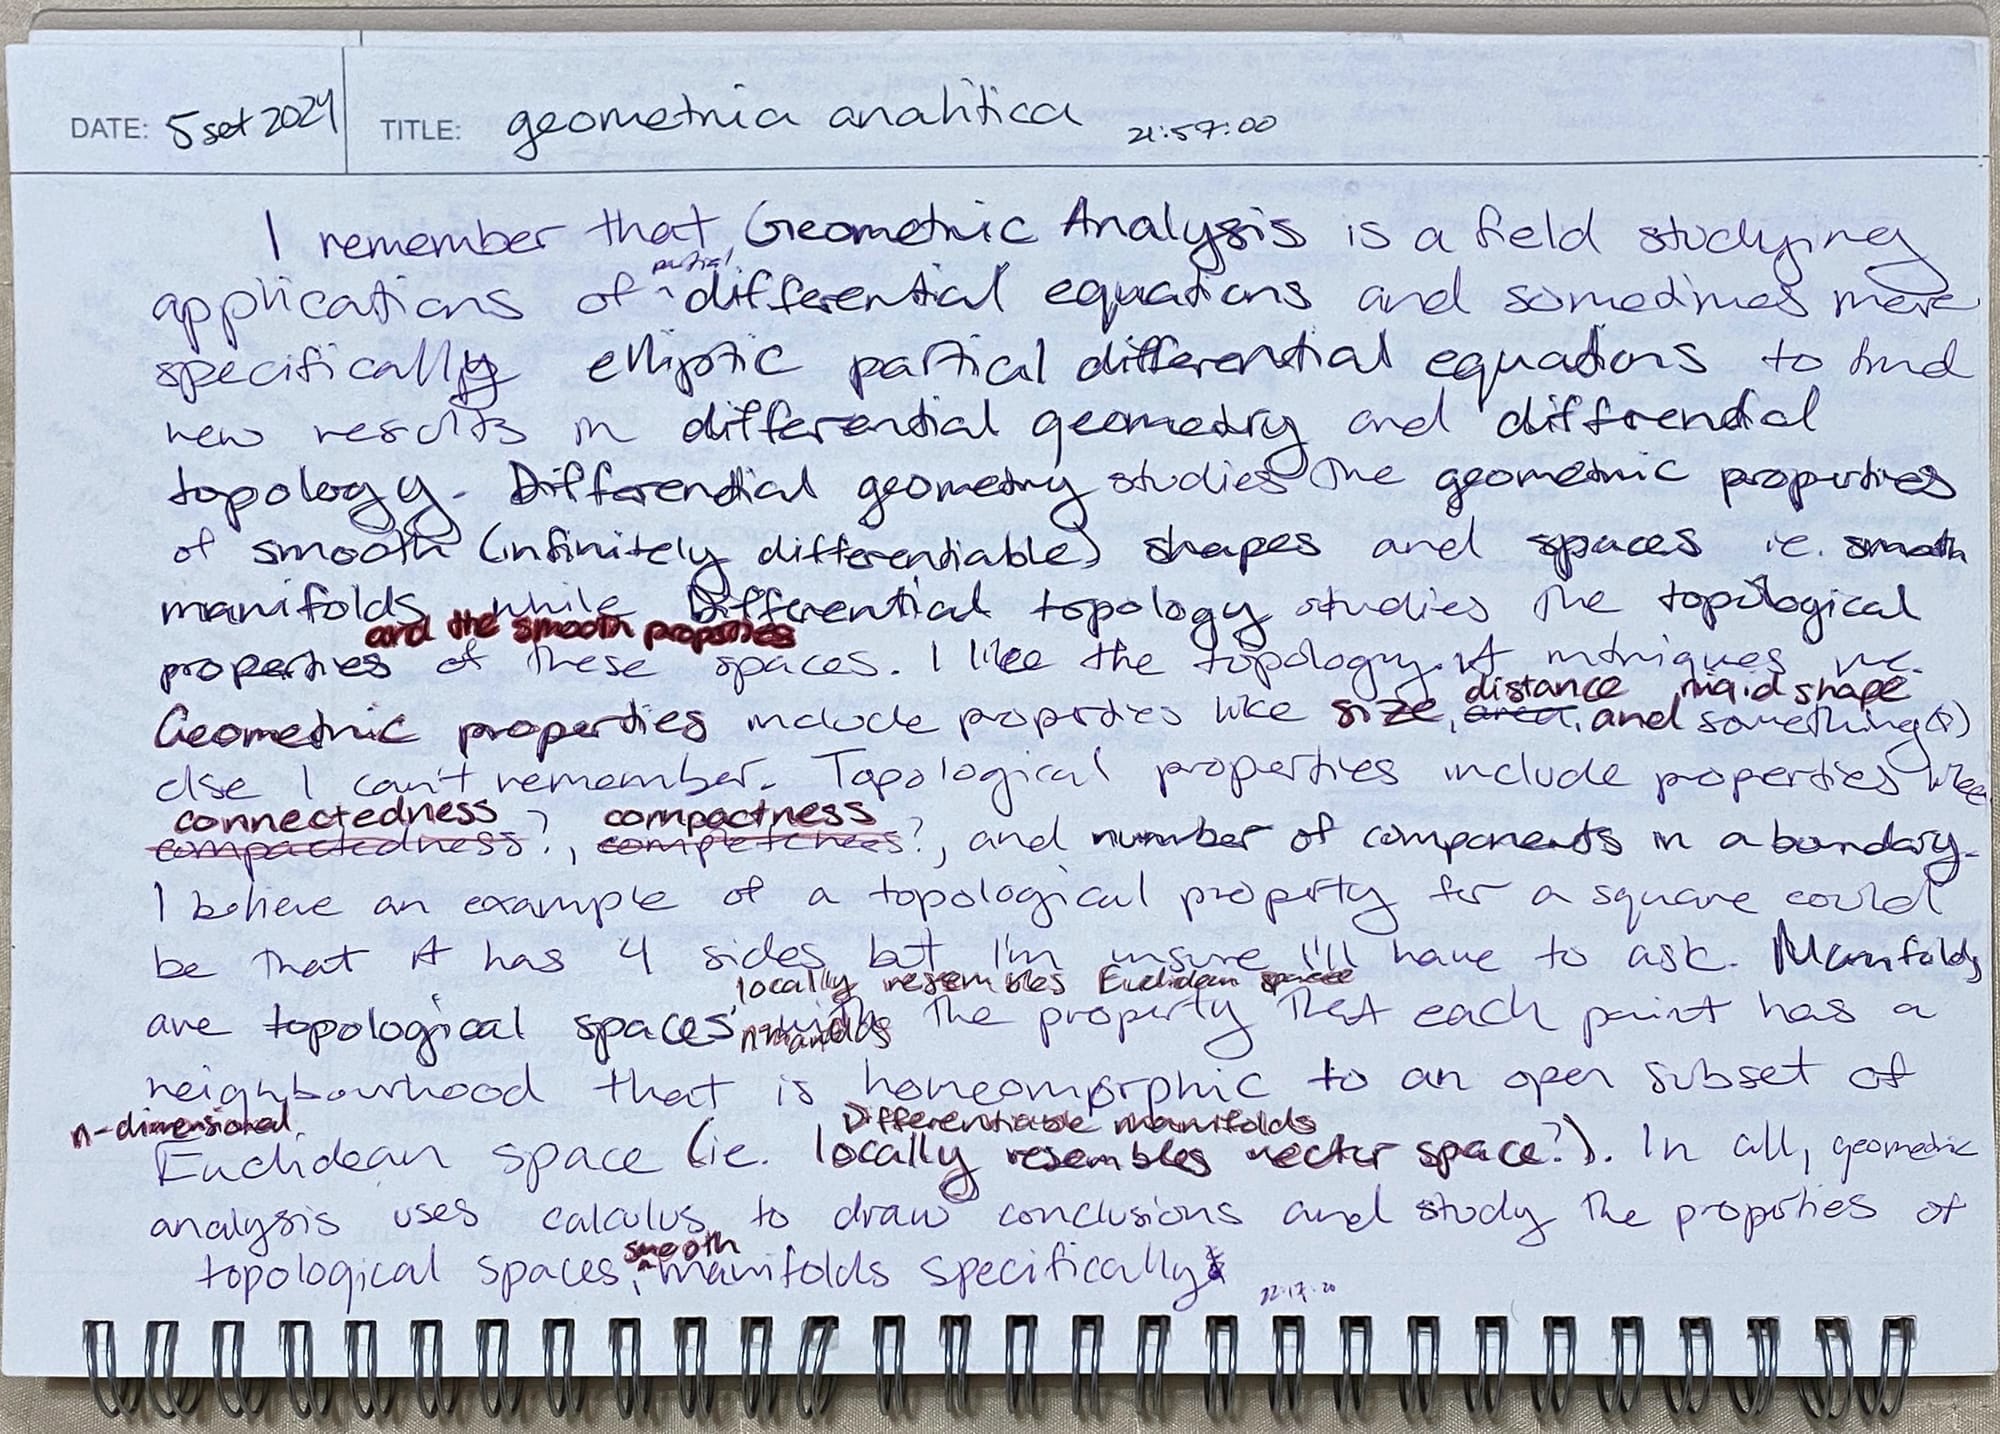 DATE: 5 set 2024 TITLE: geometria analitica 21:57:00
I remember that Geometric Analysis is a field studying
partial
applications of ^ differential equations and sometimes more
specifically elliptic partial differential equations to find
new results in differential geometry and diffrential
topology. Differential geometry studies the geometric properties
of smooth (infinitely differentiable) shapes and spaces ie. smooth
manifolds while Differential topology studies the topological
and the smooth properties
properties of these spaces. I like the topology. It intriques me.
distance rigid shape
Geometric properties include properties like size, area, and something(s)
else I can't remember. Topological properties include properties like
connectedness compactness
compactedness?, completeness?, and number of components in a boundary.
I believe an example of a topological property for a square could
be that it has 4 sides but I'm unsure I'll have to ask. Manifolds
locally resembles Euclidean space
are topological spaces with the property that each point has a
n-manifolds
neighbourhood that is homeomorphic to an open subset of
n-dimensional Differentiable manifolds
Euclidean space (ie. locally resembles vector space?). In all, geometric
analysis uses calculus to draw conclusions and study the properties of
smooth
topological spaces, ^ manifolds specifically
22:17:20